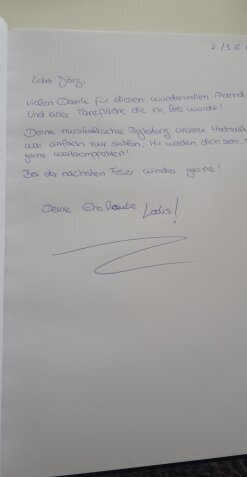 2./3.6.
Lieber Jörg,
Vielen Dank für diesen wundervollen Abend
Und einer Tanzfläche die nie leer wurde!
Deine musikalische Begleitung unserer Hochzeit
war einfach nur schön. Wir werden dich sehr
gerne weiterempfehlen!
Bei der nächsten Feier wieder gerne!
Deine Eheleute